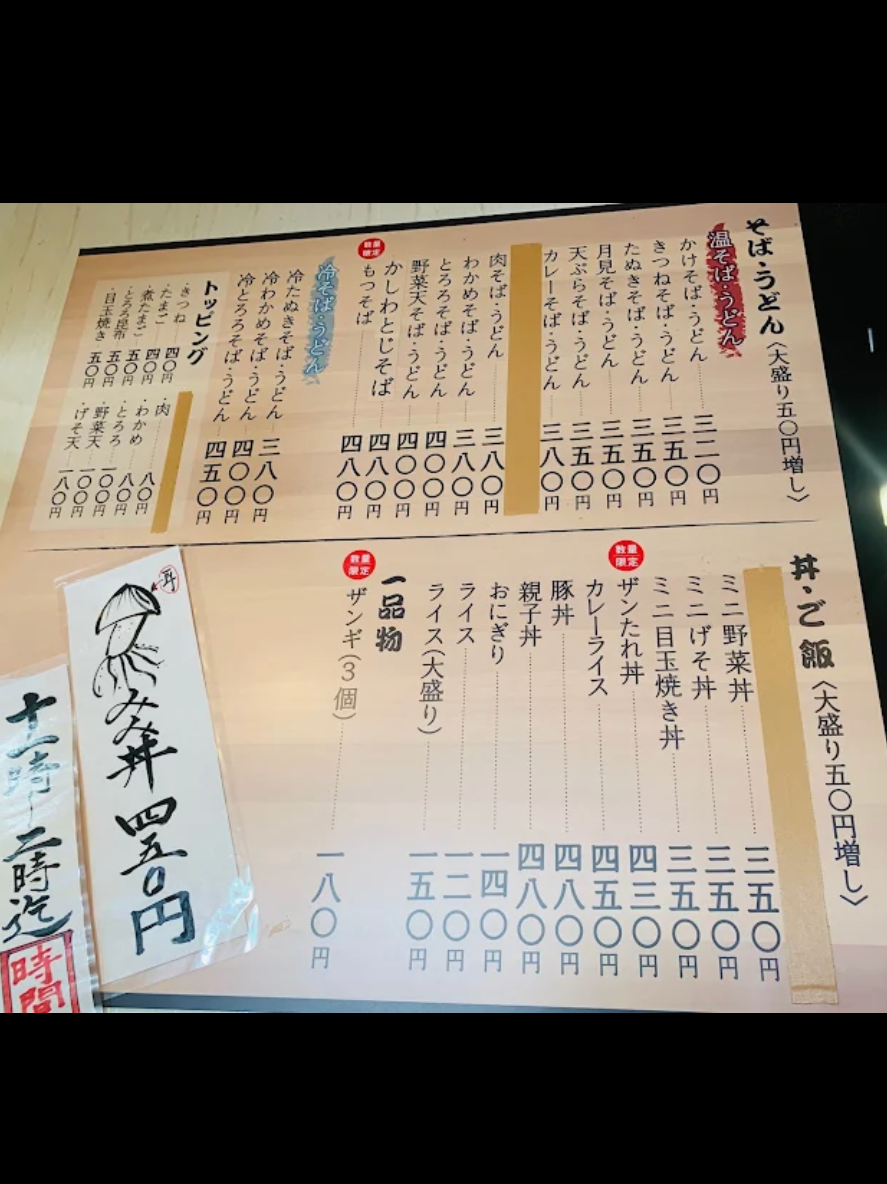 そば・うどん〈大盛り五〇円増し〉
温そば・うどん
かけそば・うどん 三二〇円
きつねそば・うどん 三五〇円
たぬきそば・うどん 三五〇円
月見そば・うどん 三五〇円
天ぷらそば・うどん 三五〇円
カレーそば・うどん 三八〇円
肉そば・うどん 三八〇円
わかめそば・うどん 三八〇円
とろろそば・うどん 四〇〇円
野菜天そば・うどん 四〇〇円
かしわとじそば 四八〇円
数量限定
もつそば 四八〇円
冷そば・うどん
冷たぬきそば・うどん 三八〇円
冷わかめそば・うどん 四〇〇円
冷とろろそば・うどん 四五〇円
トッピング
・きつね 四〇円
・たまご 四〇円
・煮たまご 五〇円
・とろろ昆布 五〇円
・目玉焼き 五〇円
・肉
・わかめ 八〇円
・とろろ 八〇円
・野菜天 一〇〇円
・げそ天 一八〇円
丼・ご飯〈大盛り五〇円増し〉
ミニ野菜丼 三五〇円
ミニげそ丼 三五〇円
ミニ目玉焼き丼 三五〇円
数量限定
ザンたれ丼 四三〇円
カレーライス 四五〇円
豚丼 四八〇円
親子丼 四八〇円
おにぎり 一四〇円
ライス 一二〇円
ライス(大盛り) 一五〇円
一品物
数量限定
ザンギ(3個) 一八〇円
耳
みみ丼 四五〇円
十一時〜二時迄
時間